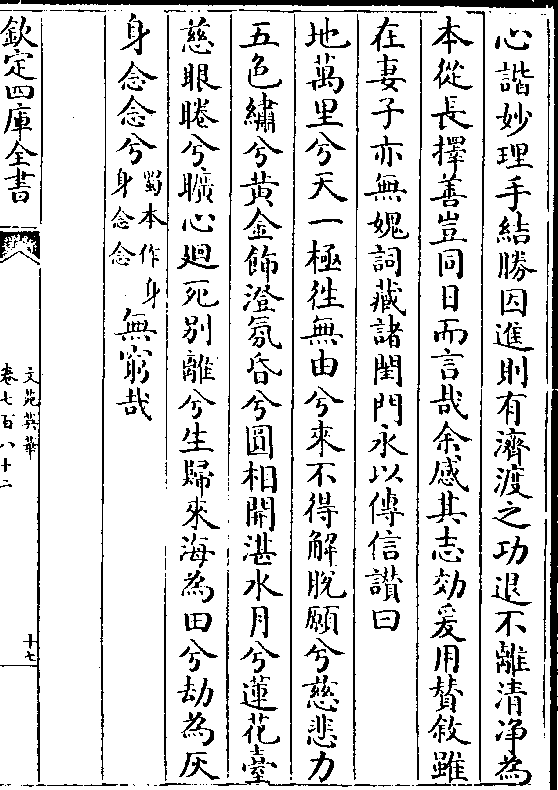 心諧妙理手結勝因進則有濟渡之功退不離清净為
本從長擇善豈同日而言哉余感其志効爰用賛敘雖
在妻子亦無媿詞藏諸閨門永以傳信讃曰
地萬里兮天一極徃無由兮來不得解脫願兮慈悲力
五色繡兮黃金飾澄氛昏兮圓相開湛水月兮蓮花臺
慈眼睠兮曠心廻死別離兮生歸來海為田兮劫為灰
身念念兮蜀本作身身念念無窮哉
欽定四庫全書
文苑英華
卷七百八十二
十七